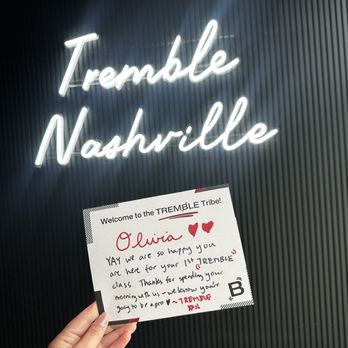 Tremble
Nashville
Welcome to the TREMBLE Tribe!
Olivia ♥♥
YAY we are so happy you
are here for your 1st TREMBLE
class. Thanks for spending your
morning with us - we know you're
going to be a pro ♥ ~ TREMBLE
B